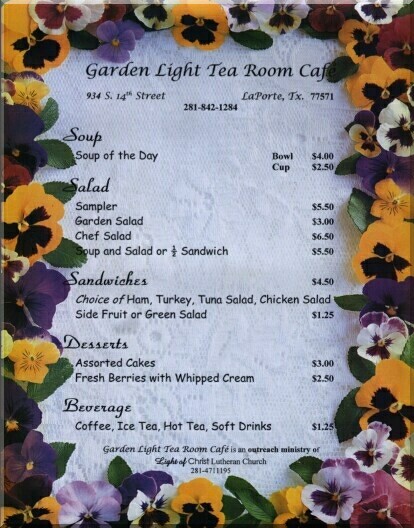 Garden Light Tea Room Café
934 S. 14th Street LaPorte, Tx. 77571
281-842-1284
Soup
Soup of the Day Bowl $4.00
Cup $2.50
Salad
Sampler $5.50
Garden Salad $3.00
Chef Salad $6.50
Soup and Salad or ½ Sandwich $5.50
Sandwiches $4.50
Choice of Ham, Turkey, Tuna Salad, Chicken Salad
Side Fruit or Green Salad $1.25
Desserts
Assorted Cakes $3.00
Fresh Berries with Whipped Cream $2.50
Beverage
Coffee, Ice Tea, Hot Tea, Soft Drinks $1.25
Garden Light Tea Room Café is an outreach ministry of
Light of Christ Lutheran Church
281-4711195